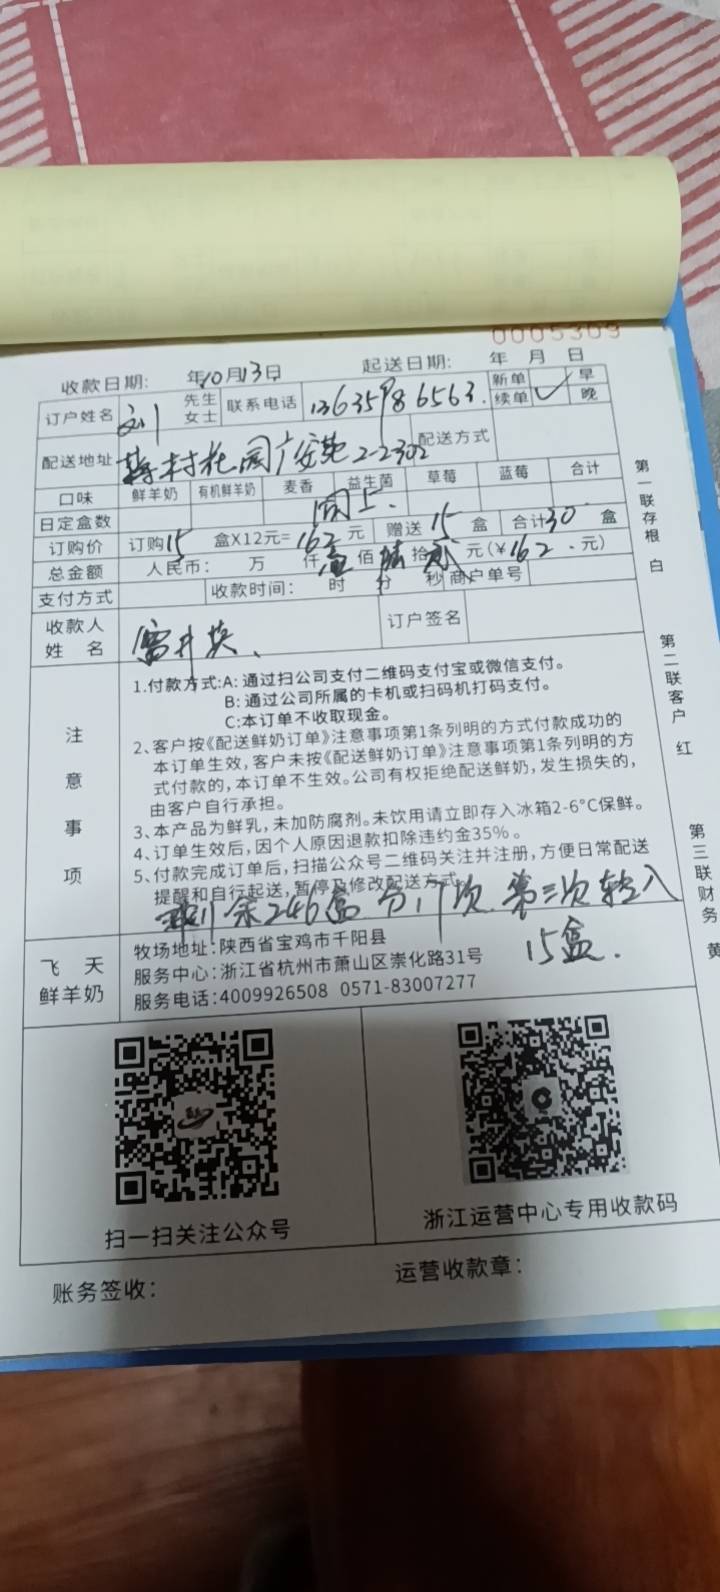 0005309
收款日期: 年10月13日 起送日期: 年 月 日
订户姓名 刘 先生 女士 联系电话 13635786563. 新单 续单 ✓ 早 晚
配送地址 村花园广安苑2-2302 配送方式
口味 鲜羊奶 有机鲜羊奶 麦香 益生菌 草莓 蓝莓 合计
日定盒数 同上.
订购价 订购15盒X12元=162元 赠送15盒 合计30盒
总金额 人民币: 万 仟 壹佰 陆拾 贰元(￥162.元)
支付方式 收款时间: 时 分 秒 商户单号
收款人姓名 雷井英、 订户签名
注意事项
1.付款方式:A: 通过扫公司支付二维码支付宝或微信支付。
B: 通过公司所属的卡机或扫码机打码支付。
C:本订单不收取现金。
2、客户按《配送鲜奶订单》注意事项第1条列明的方式付款成功的
本订单生效,客户未按《配送鲜奶订单》注意事项第1条列明的方
式付款的,本订单不生效。公司有权拒绝配送鲜奶,发生损失的,
由客户自行承担。
3、本产品为鲜乳,未加防腐剂。未饮用请立即存入冰箱2-6°C保鲜。
4、订单生效后,因个人原因退款扣除违约金35%。
5、付款完成订单后,扫描公众号二维码关注并注册,方便日常配送
提醒和自行起送,暂停及修改配送方式
余246盒 分17次.第三次转入
15盒.
飞天鲜羊奶
牧场地址:陕西省宝鸡市千阳县
服务中心:浙江省杭州市萧山区崇化路31号
服务电话:4009926508 0571-83007277
扫一扫关注公众号
浙江运营中心专用收款码
账务签收:
运营收款章:
第一联存根 白
第二联客户 红
第三联财务 黄